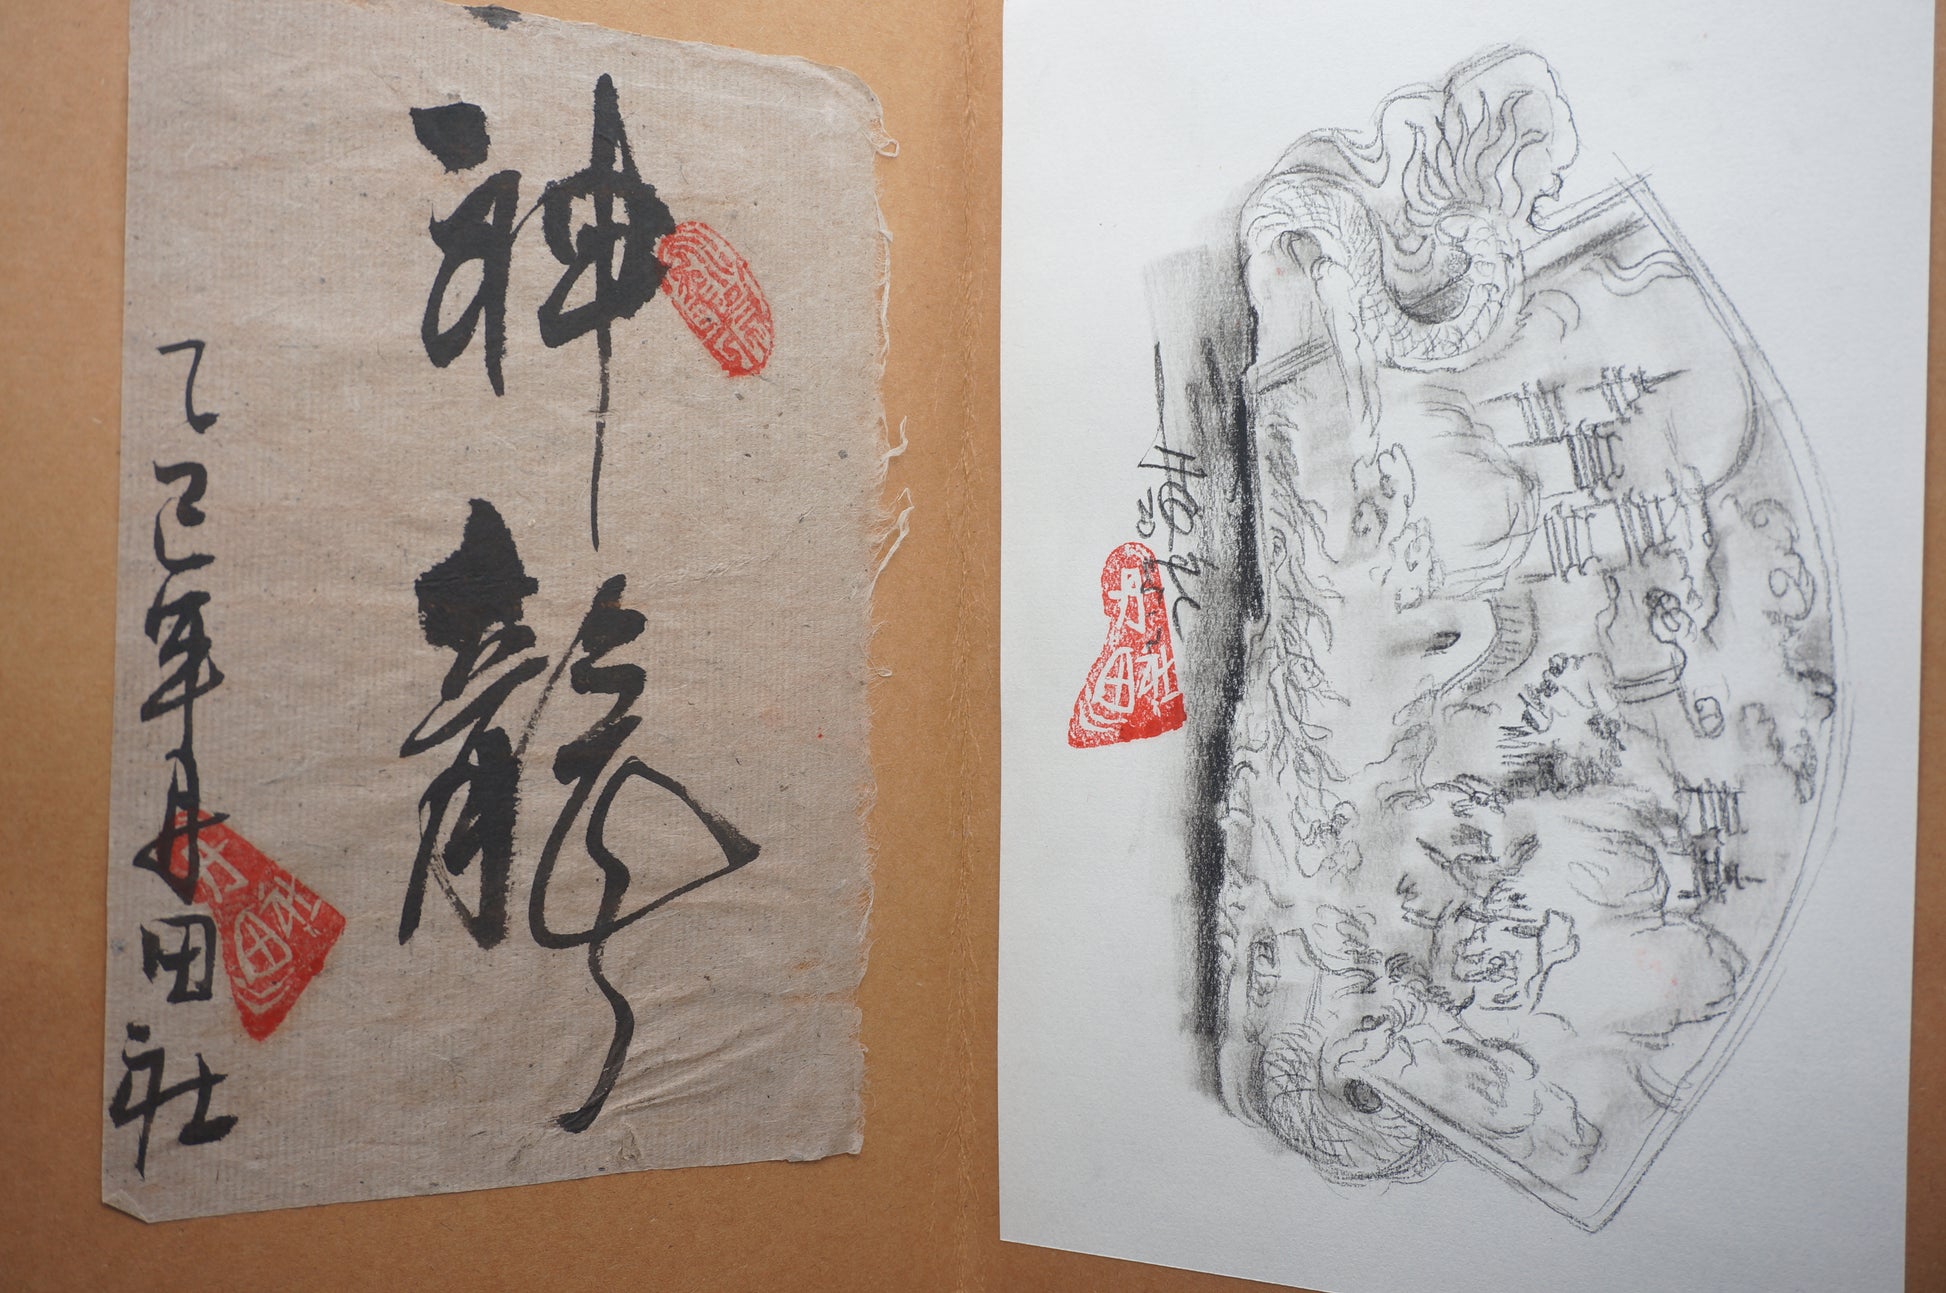 神龍
乙巳年丹田社
丹田社
丹田社